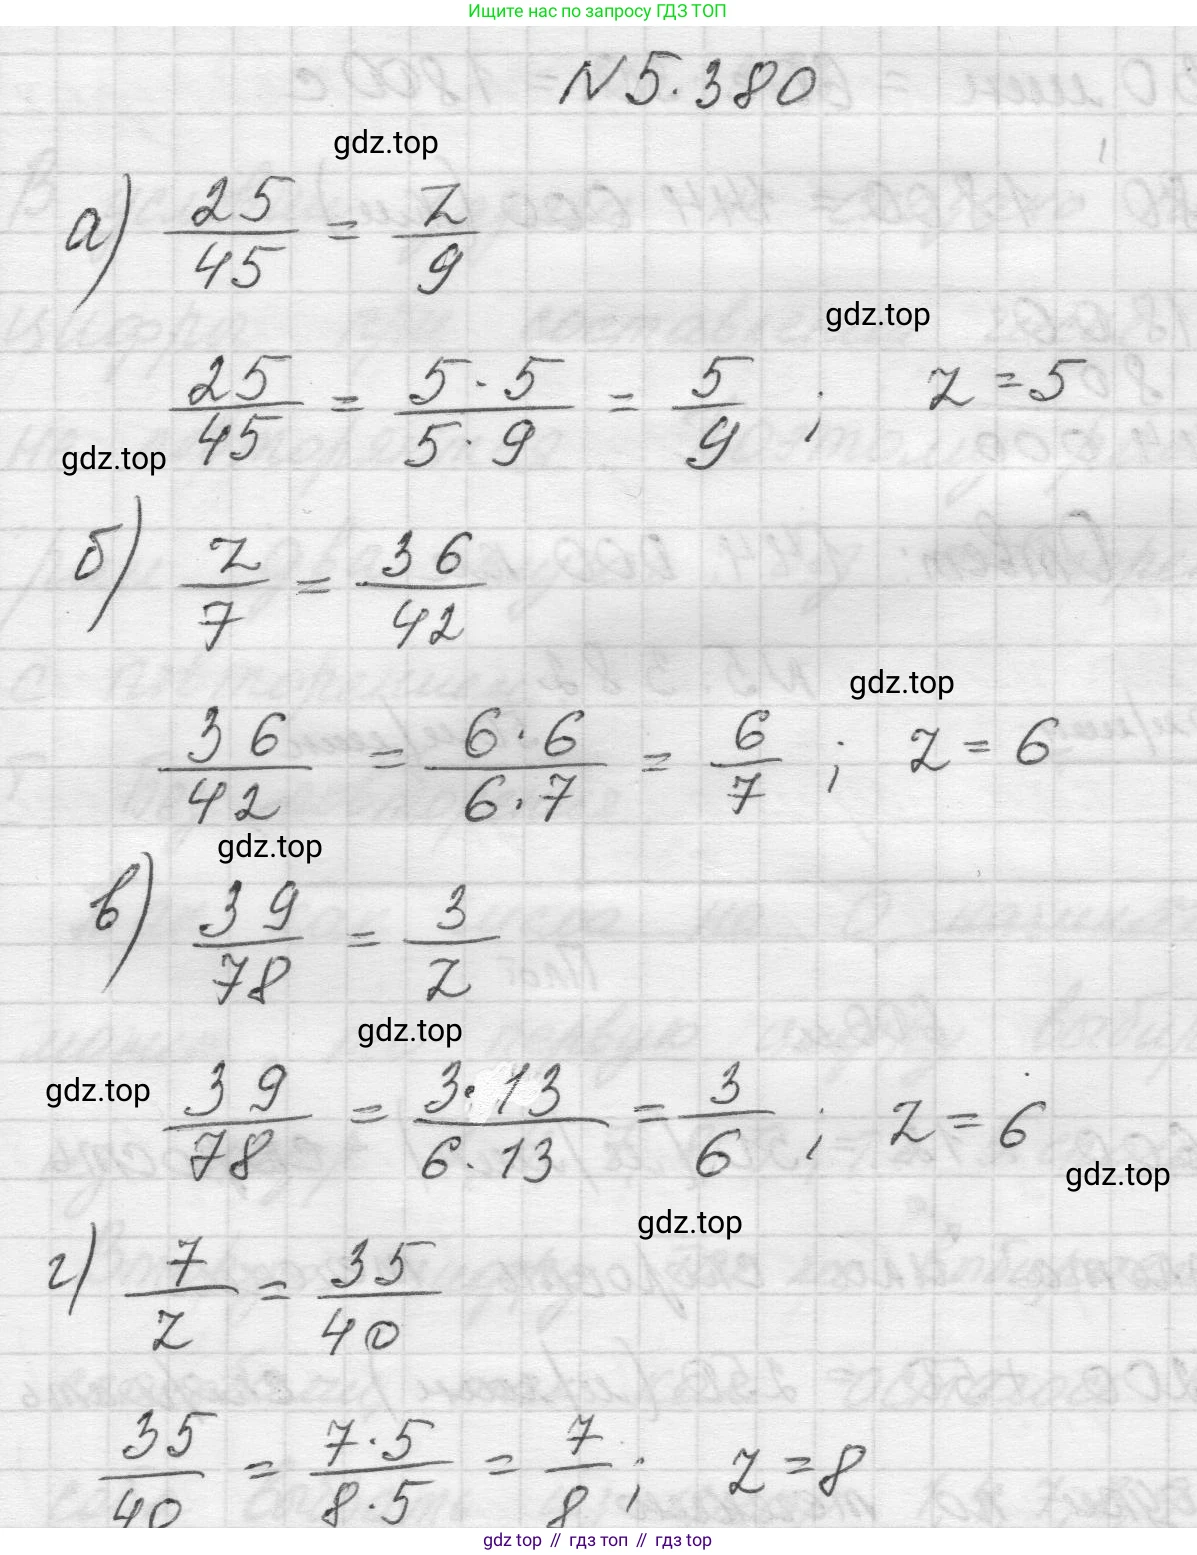 Ищите нас по запросу ГДЗ ТОП
N 5.380
gdz.top
а) 25/45 = z/9
gdz.top
25/45 = 5·5/5·9 = 5/9 ; z = 5
gdz.top
б) z/7 = 36/42
gdz.top
36/42 = 6·6/6·7 = 6/7 ; z = 6
gdz.top
в) 39/78 = 3/z
gdz.top
gdz.top
39/78 = 3·13/6·13 = 3/6 ; z = 6
gdz.top
gdz.top
г) 7/z = 35/40
35/40 = 7·5/8·5 = 7/8 ; z = 8
gdz top // гдз топ // гдз top